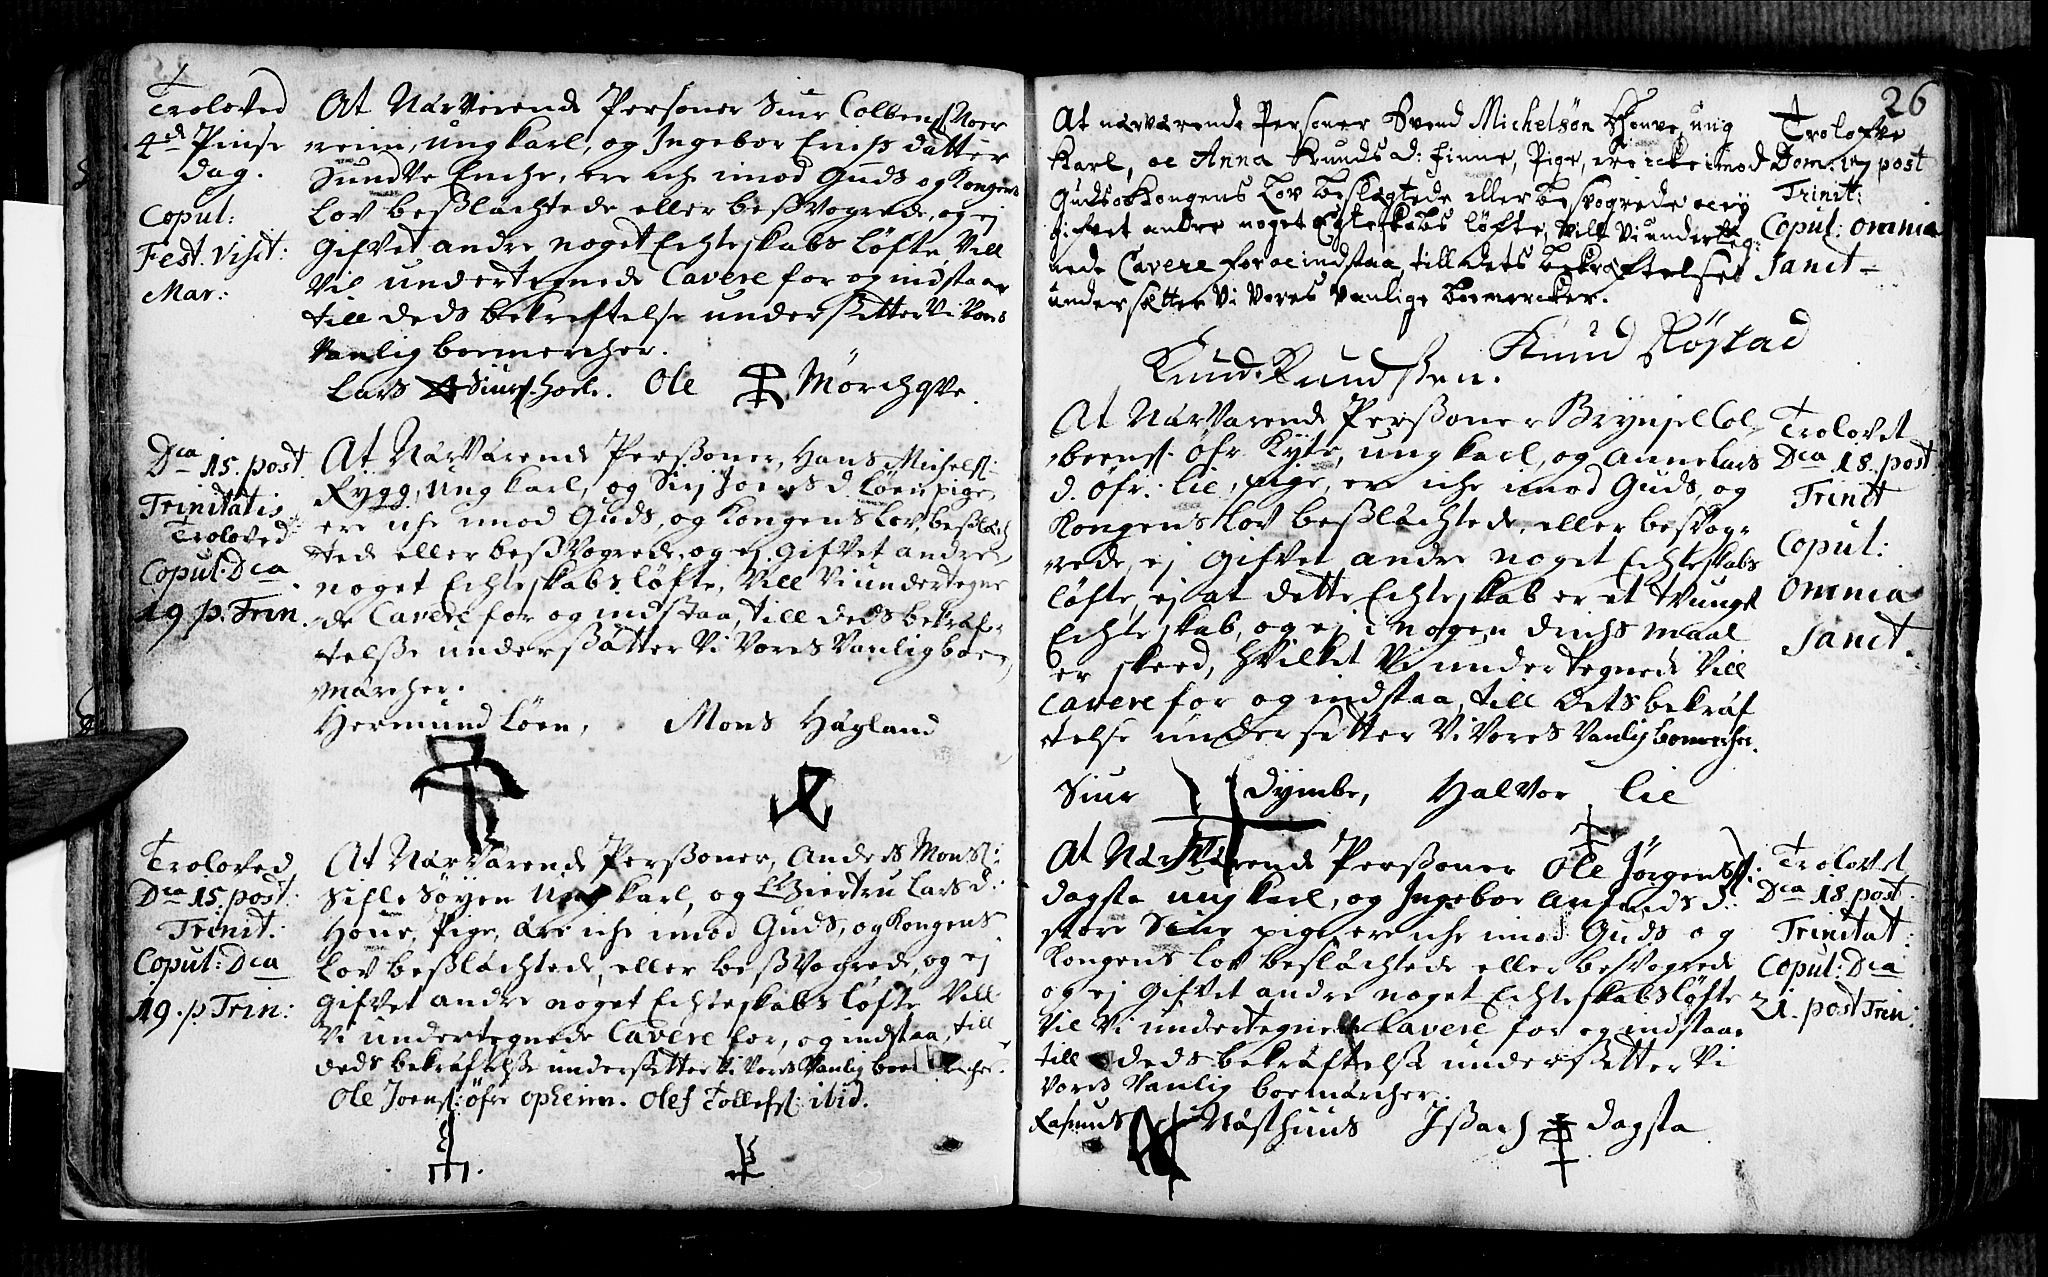 Troloved
4de Pinse
dag.
Coput:
Fest. Visit:
Mar:
At Nærverende Personer Siur Colbens: Noer
reim, ung karl, og Ingebor Erichs datter
Sundve Enche, ere iche imod Guds og Kongens
lov beßlächtede eller beßvogrede, og ej
gifvet andre noget Echteskabs løfte, Vill
Vil undertegnede Cavere for og indstaae
till deds bekreftelse underßetter Vi Vores
Vanlig boemercher.
Lars Siurs: hoele. Ole Mörchqve.
Dca 15. post
Trinitatis
Troloved
Coput: Dca
19 p. Trin.
At Närvärende Perßoner, Hans Michels:
Rygg, Ung karl, og Siri Joens d. Löen pige,
ere iche imod Guds, og Kongens lov, beßläch
tede eller beßvogrede, og ej gifvet andre
noget Echteskabs løfte, Vill Vi undertegne
de Cavere for og indstaa, till deds bekräf
telße underßätter Vi Vores Vanlig boe
märcher.
Hermund Löen, Mons Hägland
Troloved
Dca 15. post
Trinit:
Coput: Dca
19. p Trin:
At Närvärende Perßoner, Anders Mons:
Sifle Söyen Ung karl, og Giertru Lars d:
Houe, Pige, äre iche imod Guds, og Kongens
lov beßlächtede, eller beßvogrede, og ej
gifvet andre noget Echteskabs løfte Vill
Vi undertegnede Cavere for, og indstaa, till
deds bekräftelße underßetter Vi Vores Vanlig boe
Ole Joens: öfre Opheim. Olef Tollefs: ibid.
26
At nærværende Personer Svend Michelsøn Schonve, ung
Karl, oc Anna Knuds d: Finne, Pige, ere icke imod
Guds oc Kongens Lov beslegtede eller besvogrede oc ey
gifvet andre noget Egteskabs løfte, Vill Vi underteg:
nede Cavere for oc indstaa, till dets bekræftelse
undersætter Vi Vores Vanlige boemercker.
Knud Knudßen. Knud Røstad
Trolofve
Dom: 17 post
Trinit:
Coput: omnia
Sanct
At Närvärende Perßoner Brynjel Col
beens: öfr Kyte, ung karl, og Anne Lars
d. öfr: lie, pige, ere iche imod Guds, og
Kongens lov beßlächtede, eller besvog
rede, ej gifvet andre noget Echteskabs
løfte, ej at dette Echteskab er et tvungt
Echteskab, og ej i nogen druchs maal
er skeed, hvilket Vi undertegnede Vill
Cavere for og indstaa, till Dets bekräf
telse undersetter Vi Vores Vanlig bomercher.
Siur Dymbe, Halvor Lie
Trolovet
Dca 18. post
Trinit
Coput:
omnia
Sanct.
At Närvärende Perßoner Ole Jörgenß:
Dagsta ung karl, og Ingebor Anfinds d:
store Saue pige ere iche imod Guds og
Kongens lov beslächtede eller besvogrede
og ej gifvet andre noget Echteskabs løfte
Vil Vi undertegnede Cavere for og indstaae
till deds bekräftelße underßetter Vi
Vores Vanlig boemärcher.
Rasmus Nästhuus Ißach Dagsta
Trolovet
Dca 18. post
Trinitat:
Coput: Dca
21. post Trin: